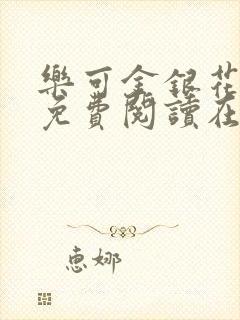 樂可金銀花
免費閱讀在
惠娜